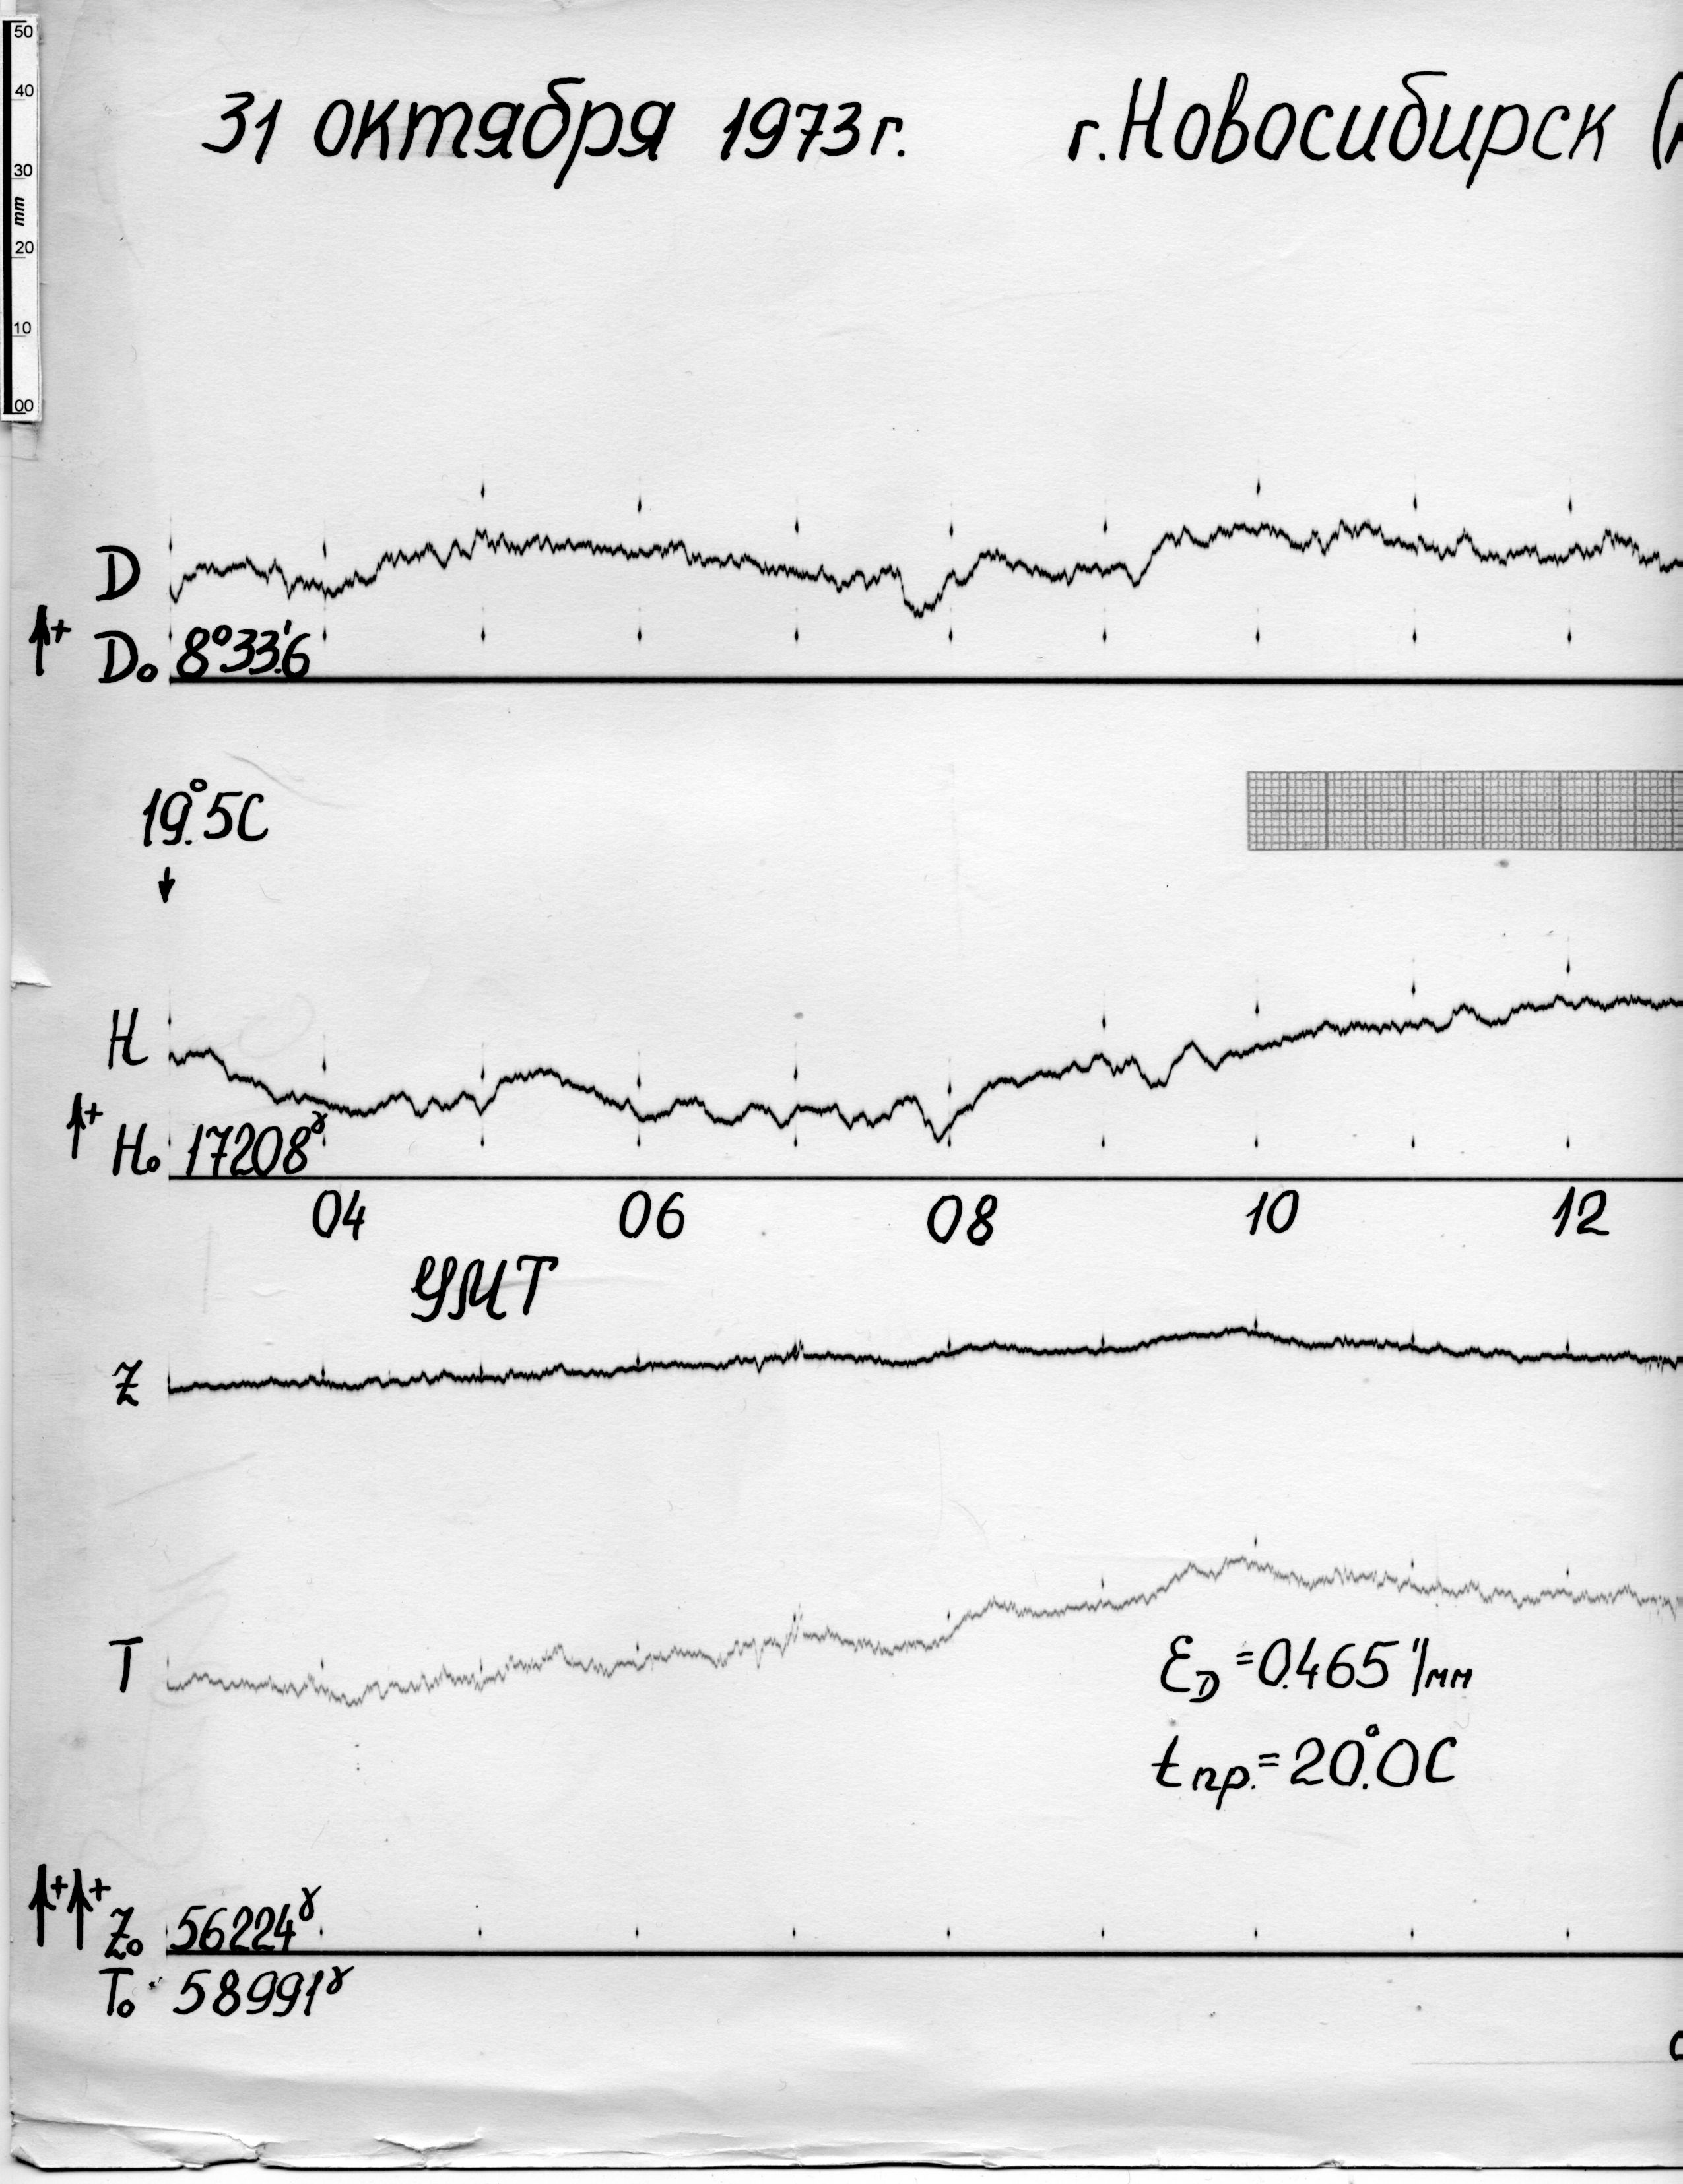 50
40
30
mm
20
10
00
31 октября 1973 г. г. Новосибирск (
D
+
D₀ 8°33.'6
19.°5C
H
+
H₀ 17208ᵞ
04 06 08 10 12
УМТ
Z
T
ε_D = 0.465 '/мм
t пр. = 20.°0C
+ +
Z₀ 56224ᵞ
T₀ 58991ᵞ